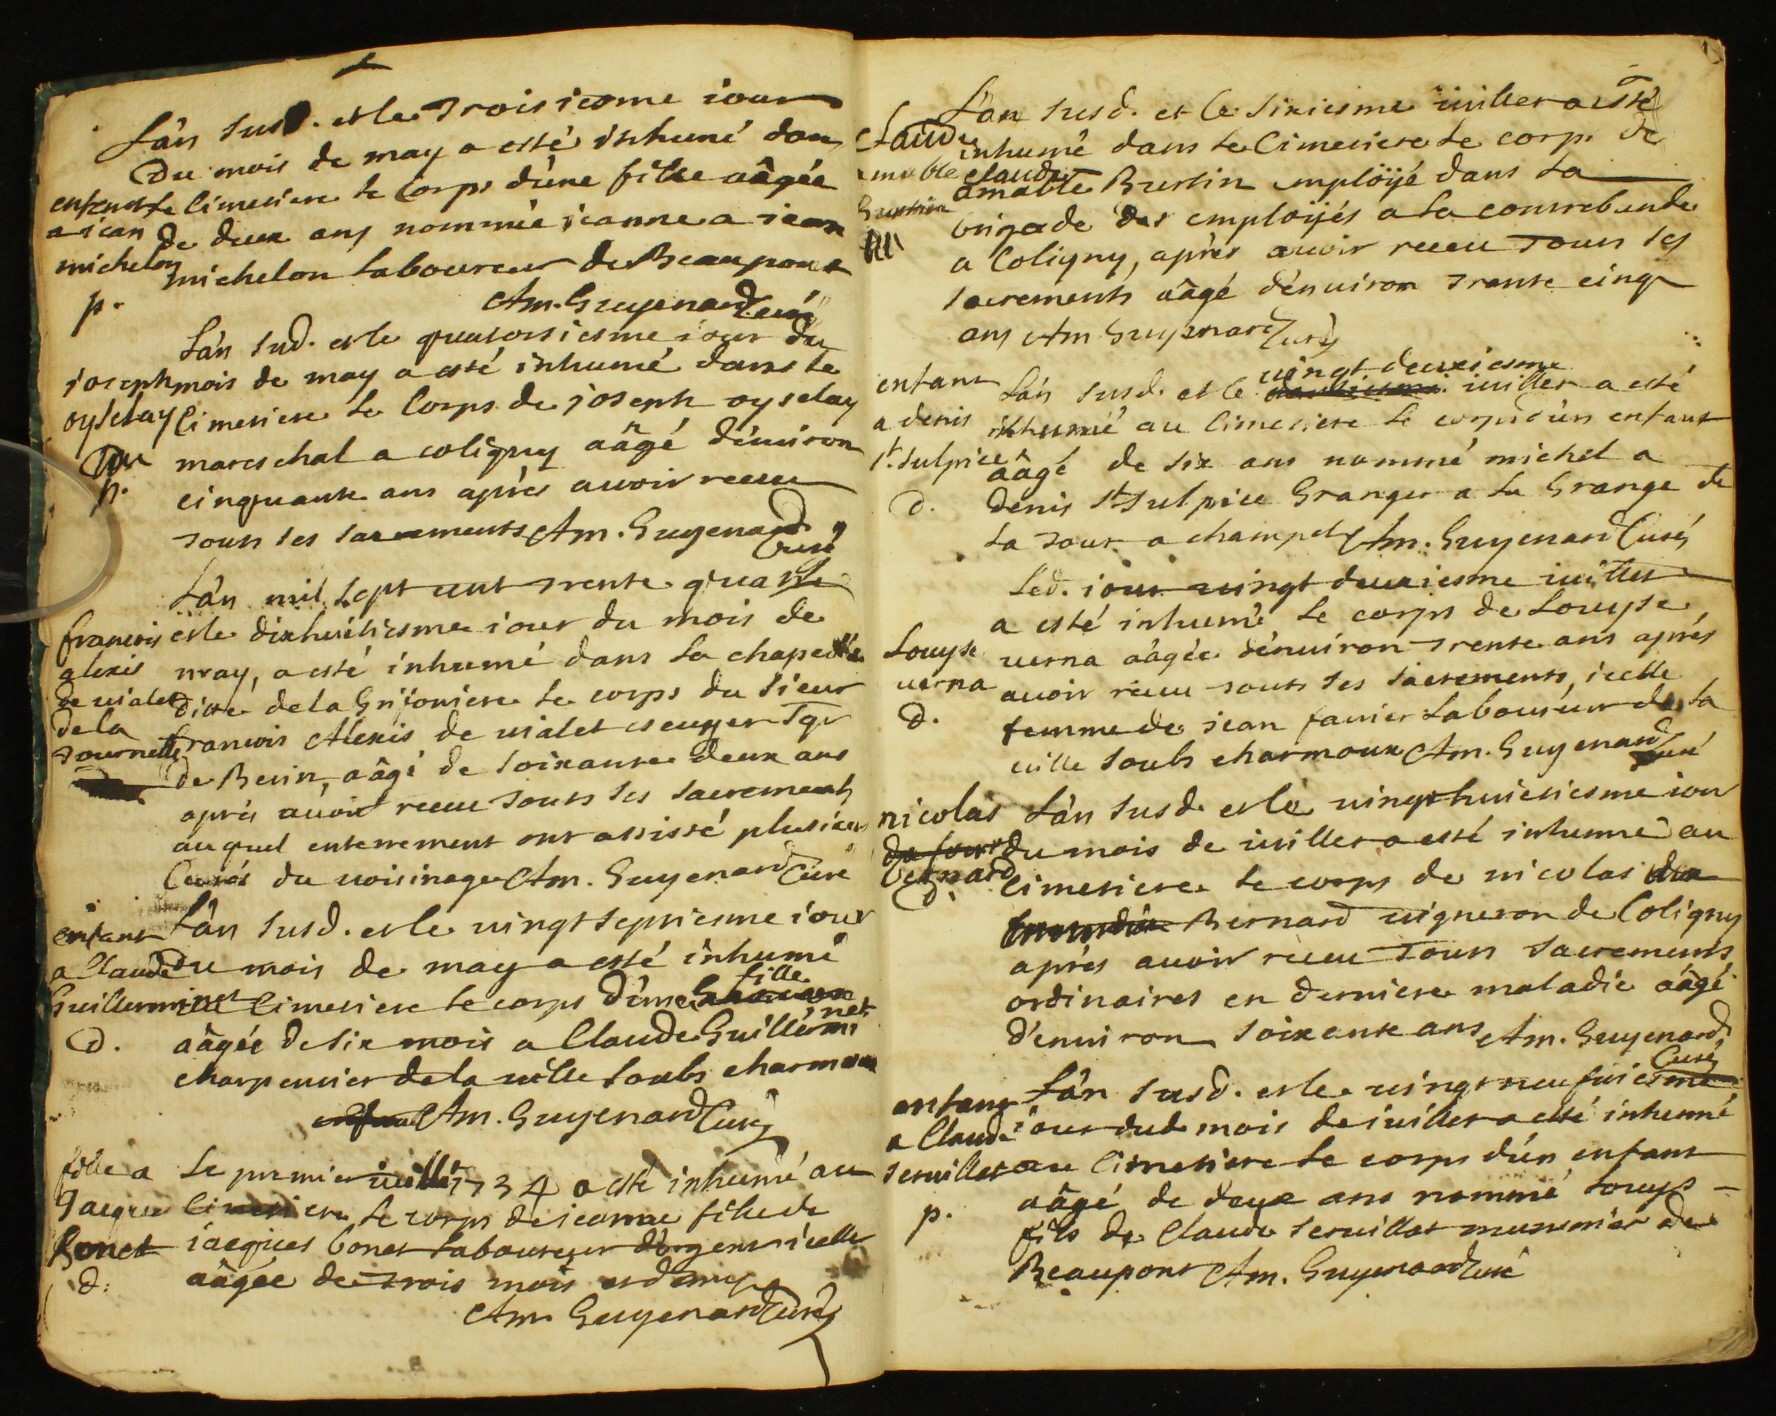 L'an susd. et le troisiesme iour
du mois de may a esté inhumé dans
le Cimetiere le Corps d'une fille aâgée
de deux ans nommée ieanne a iean
michelon laboureur de Beaupont
Am. Guyenard Curé
enfant
a iean
michelon
p.
L'an susd. et le quatorsiesme iour du
mois de may a esté inhumé dans le
Cimetiere le Corps de joseph oyselay
mareschal a coligny aâgé d'enuiron
cinquante ans aprés auoir receu
touts ses sacrements Am. Guyenard
Curé
joseph
oyselay
p.
L'an mil sept cent trente quatre
et le dixhuitiesme iour du mois de
may, a esté inhumé dans la chapelle
dite de la Grifoniere le corps du sieur
francois Alexis de uialet escuyer sgr
de Beuin aâgé de soixante deux ans
aprés auoir receu touts ses sacrements
auquel enterrement ont assisté plusieurs
Curés du uoisinage Am. Guyenard Curé
francois
alexis
de uialet
de la
tournelle
L'an susd. et le uingt septiesme iour
du mois de may a esté inhumé
au Cimetiere le corps d'une fille
aâgée de six mois a Claude Guillerminet
charpentier de la uille soubs charmoux
Am. Guyenard Curé
enfant
a Claude
Guillerminet
d.
Le premier iuillet 1734 a esté inhumé au
Cimetiere le corps de ieanne fille de
iacques bonet laboureur d'argent icelle
aâgée de trois mois et demy
Am. Guyenard Curé
fille a
Jacques
bonet
d.
L'an susd. et le sixiesme iuillet a esté
inhumé dans le Cimetiere le corps de
claude
amable Burtin employé dans la
brigade des employés a la contrebande
a Coligny, aprés auoir receu touts ses
sacrements aâgé d'enuiron trente cinq
ans Am Guyenard Curé
Claude
amable
Burtin
L'an susd. et le uingt deuxiesme iuillet a esté
inhumé au Cimetiere le corps d'un enfant
aâgé de six ans nommé michel a
denis st. sulpice Granger a la Grange de
la tour a champel Am. Guyenard Curé
enfant
a denis
st. sulpice
d.
Led. iour uingt deuxiesme iuillet
a esté inhumé le corps de Louyse
uerna aâgée d'enuiron trente ans aprés
auoir receu touts ses sacrements, icelle
femme de iean fauier laboureur de la
uille soubs charmoux Am. Guyenard
Curé
Louyse
uerna
d.
L'an susd. et le uingt huictiesme iour
du mois de iuillet a esté inhumé au
Cimetiere le corps de nicolas
Bernard uigneron de Coligny
aprés auoir receu touts sacrements
ordinaires en derniere maladie aâgé
d'enuiron soixante ans Am. Guyenard
Curé
nicolas
bernard
d.
L'an susd. et le uingt neufuiesme
iour dud. mois de iuillet a esté inhumé
au Cimetiere le corps d'un enfant
aâgé de deux ans nommé Louys
fils de Claude seruillat munsnier de
Beaupont Am. Guyenard Curé
enfant
a Claude
seruillat
p.